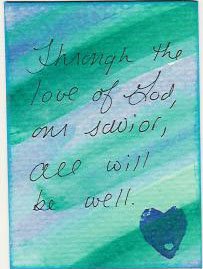 Through the
love of God,
our savior,
all will
be well.